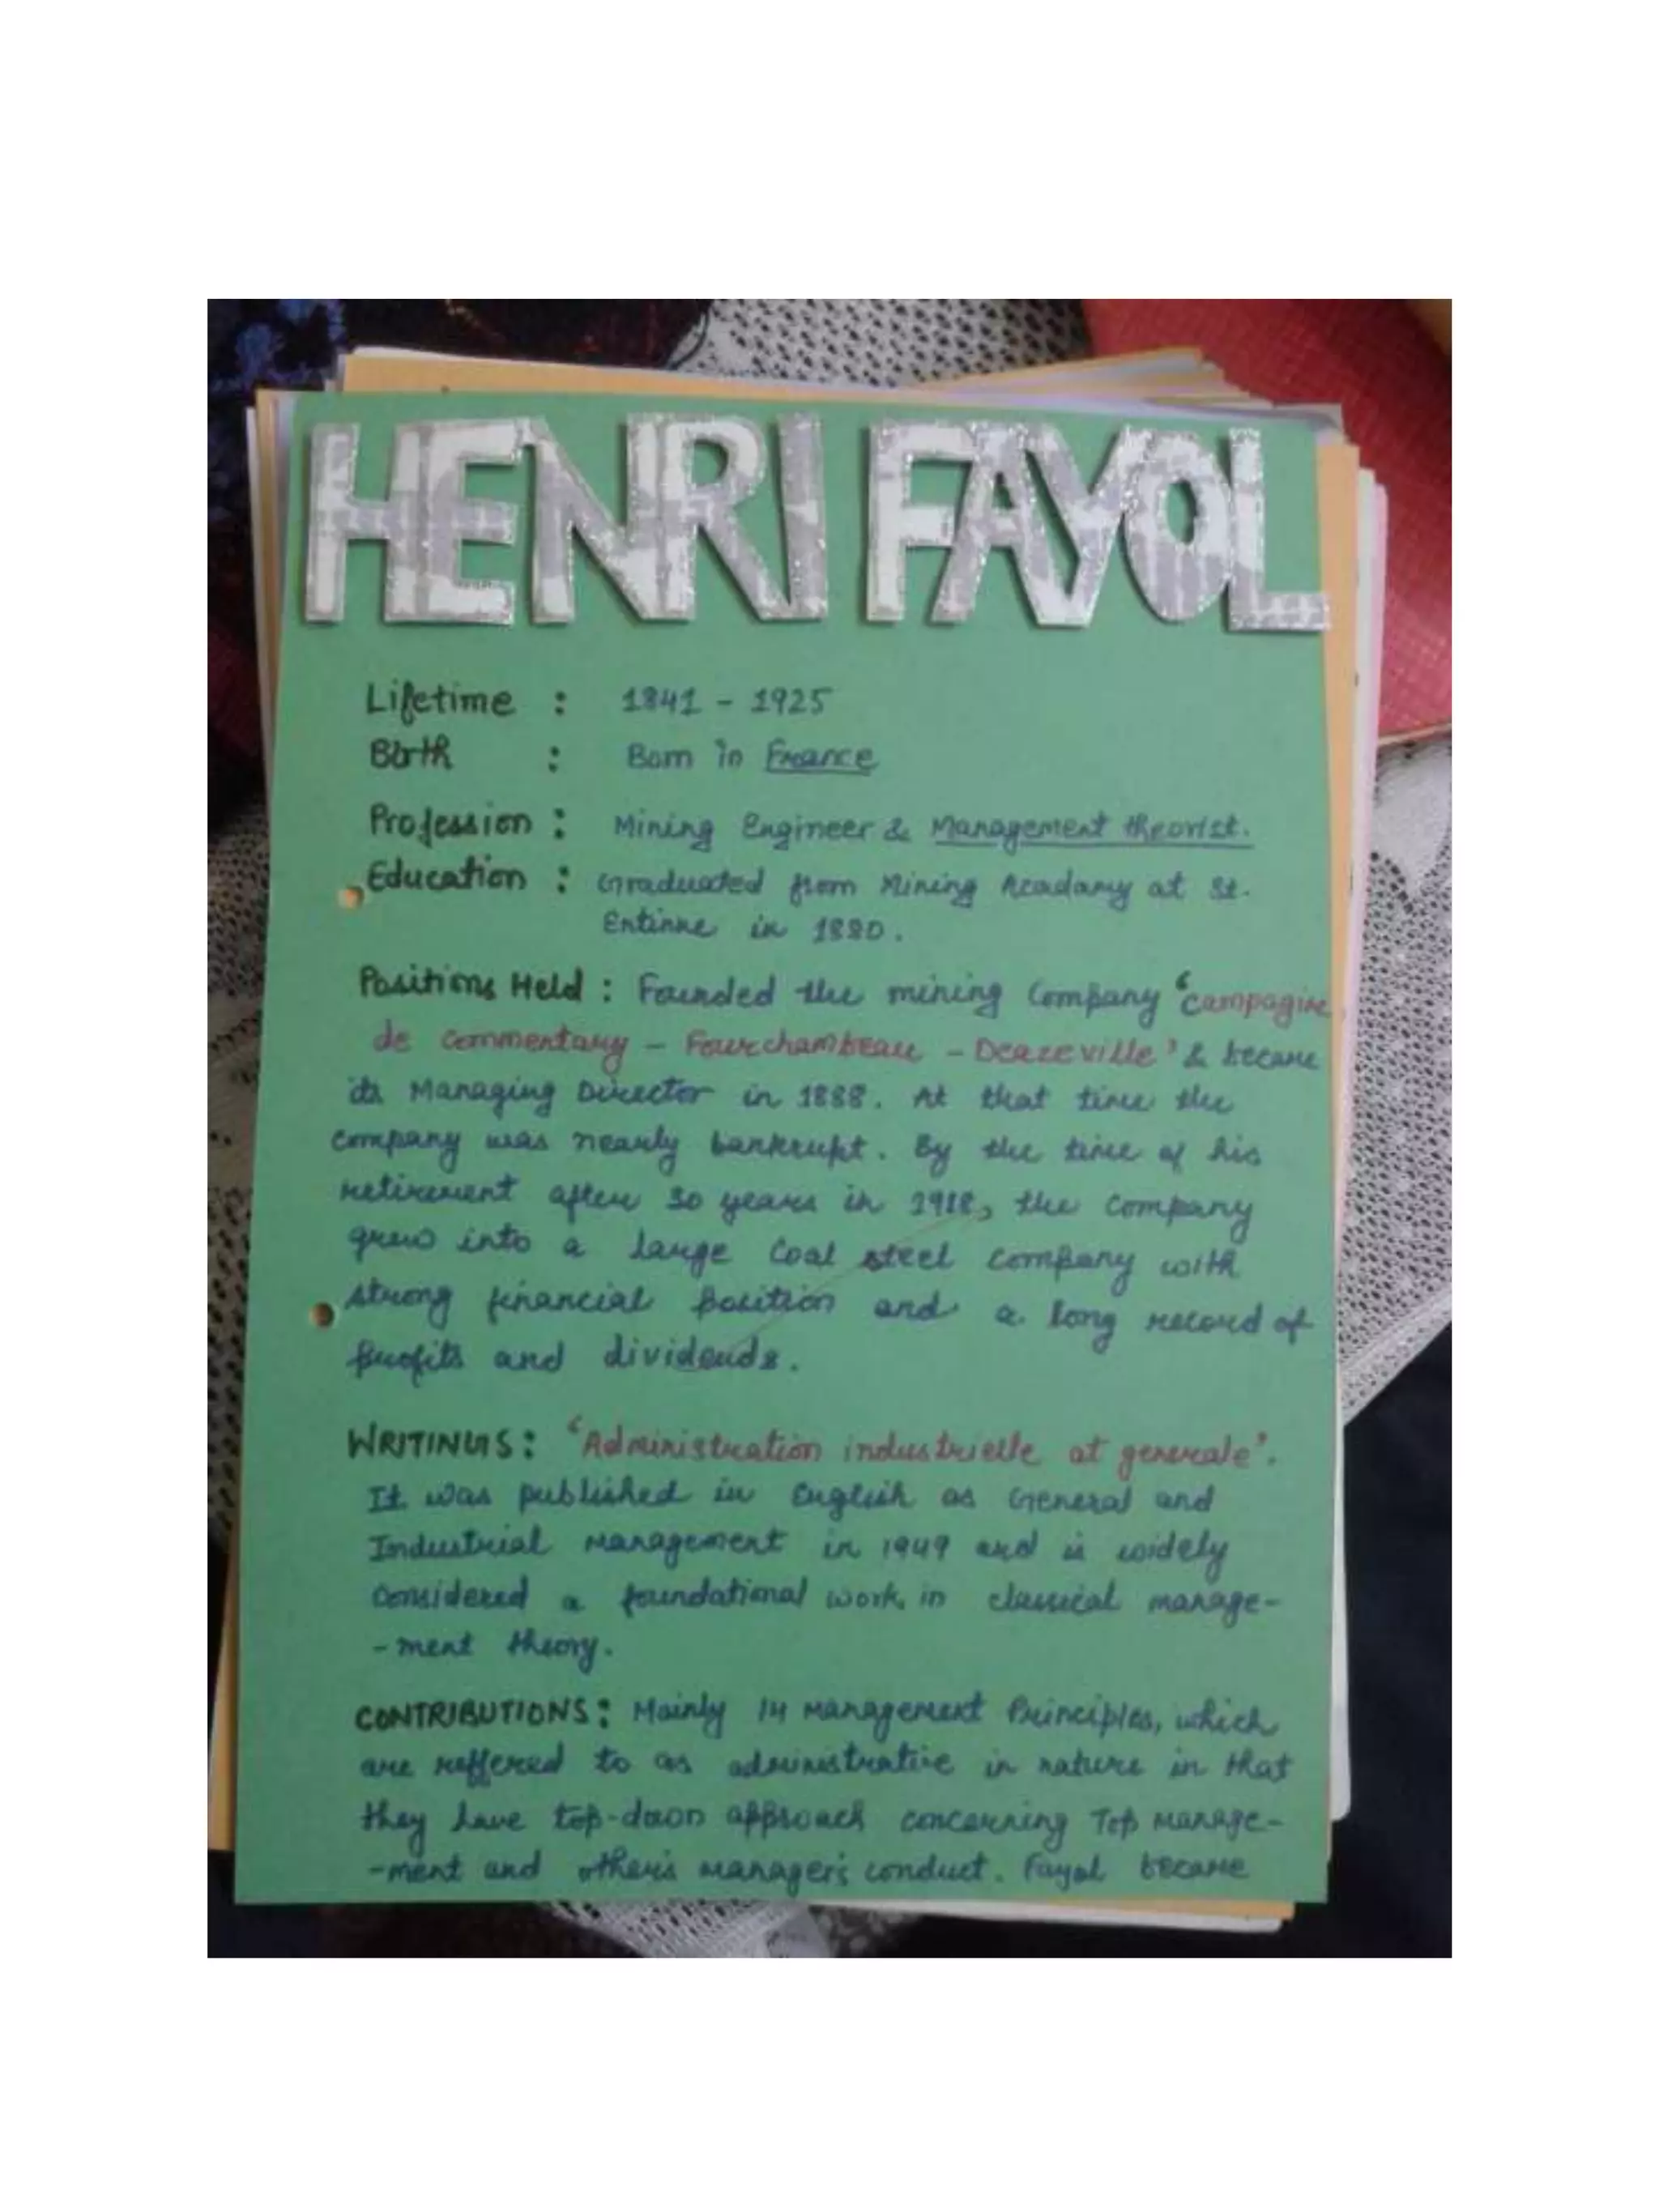 HENRI FAYOL
Lifetime : 1841 - 1925
Birth : Born in France
Profession : Mining Engineer & Management theorist.
Education : Graduated from Mining Acadamy at St.
Entinne in 1880.
Positions Held : Founded the mining Company 'campagine
de commentary - Fourchambeau - Deazeville' & became
its Managing Director in 1888. At that time the
company was nearly bankrupt. By the time of his
retirement after 30 years in 1918, the company
grew into a large coal steel company with
strong financial position and a long record of
profits and dividends.
WRITINGS : 'Administration industrielle at generale'.
It was published in English as General and
Industrial Management in 1949 and is widely
considered a foundational work in classical manage-
- ment theory.
CONTRIBUTIONS : Mainly 14 Management Principles, which
are reffered to as administrative in nature in that
they have top-down approach concerning Top manage-
-ment and other's manager's conduct. Fayol became